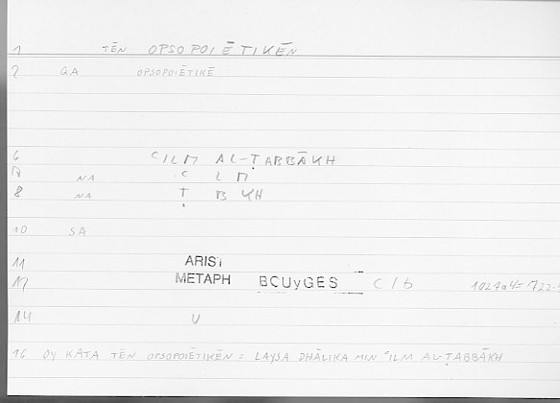 1 TĒN OPSOPOIĒTIKĒN
2 QA OPSOPOIĒTIKĒ
6 CILM AL-ṬABBĀKH
7 NA C L M
8 NA Ṭ B KH
10 SA
11 ARIST
12 METAPH BCUyGES C/b 1027a4=722
14 U
16 OY KATA TĒN OPSOPOIĒTIKĒN = LAYSA DHĀLIKA MIN ʿILM AL-ṬABBĀKH